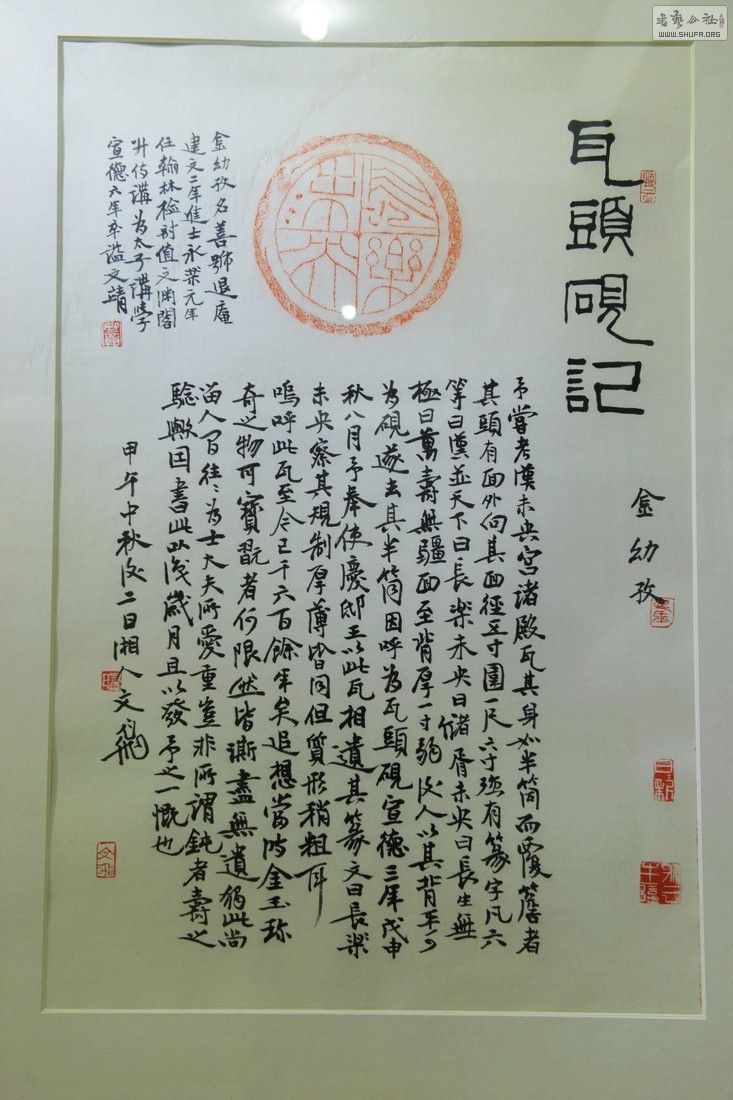 瓦頭硯記
金幼孜
予嘗考漢未央宮諸殿瓦其身如半筒而覆簷者
其頭有面外向其面徑五寸圍一尺六寸強有篆字凡六
等曰漢並天下曰長樂未央曰儲胥未央曰長生無
極曰萬壽無疆面至背厚一寸弱後人以其背平可
為硯遂去其半筒因呼為瓦頭硯宣德三年戊申
秋八月予奉使慶邸王以此瓦相遺其篆文曰長樂
未央察其規制厚薄皆同但質形稍粗耳
嗚呼此瓦至今已千六百餘年矣追想當時金玉珍
奇之物可寶翫者何限然皆澌盡無遺獨此尚
留人間往々為士大夫所愛重豈非所謂鈍者壽之
驗歟因書此以識歲月且以發予之一慨也
甲午中秋後二日湘人文
金幼孜名善號退庵
建文二年進士永樂元年
任翰林檢討值文淵閣
升侍講為太子講學
宣德六年卒謚文靖
長樂未央
書藝公社
WWW.SHUFA.ORG